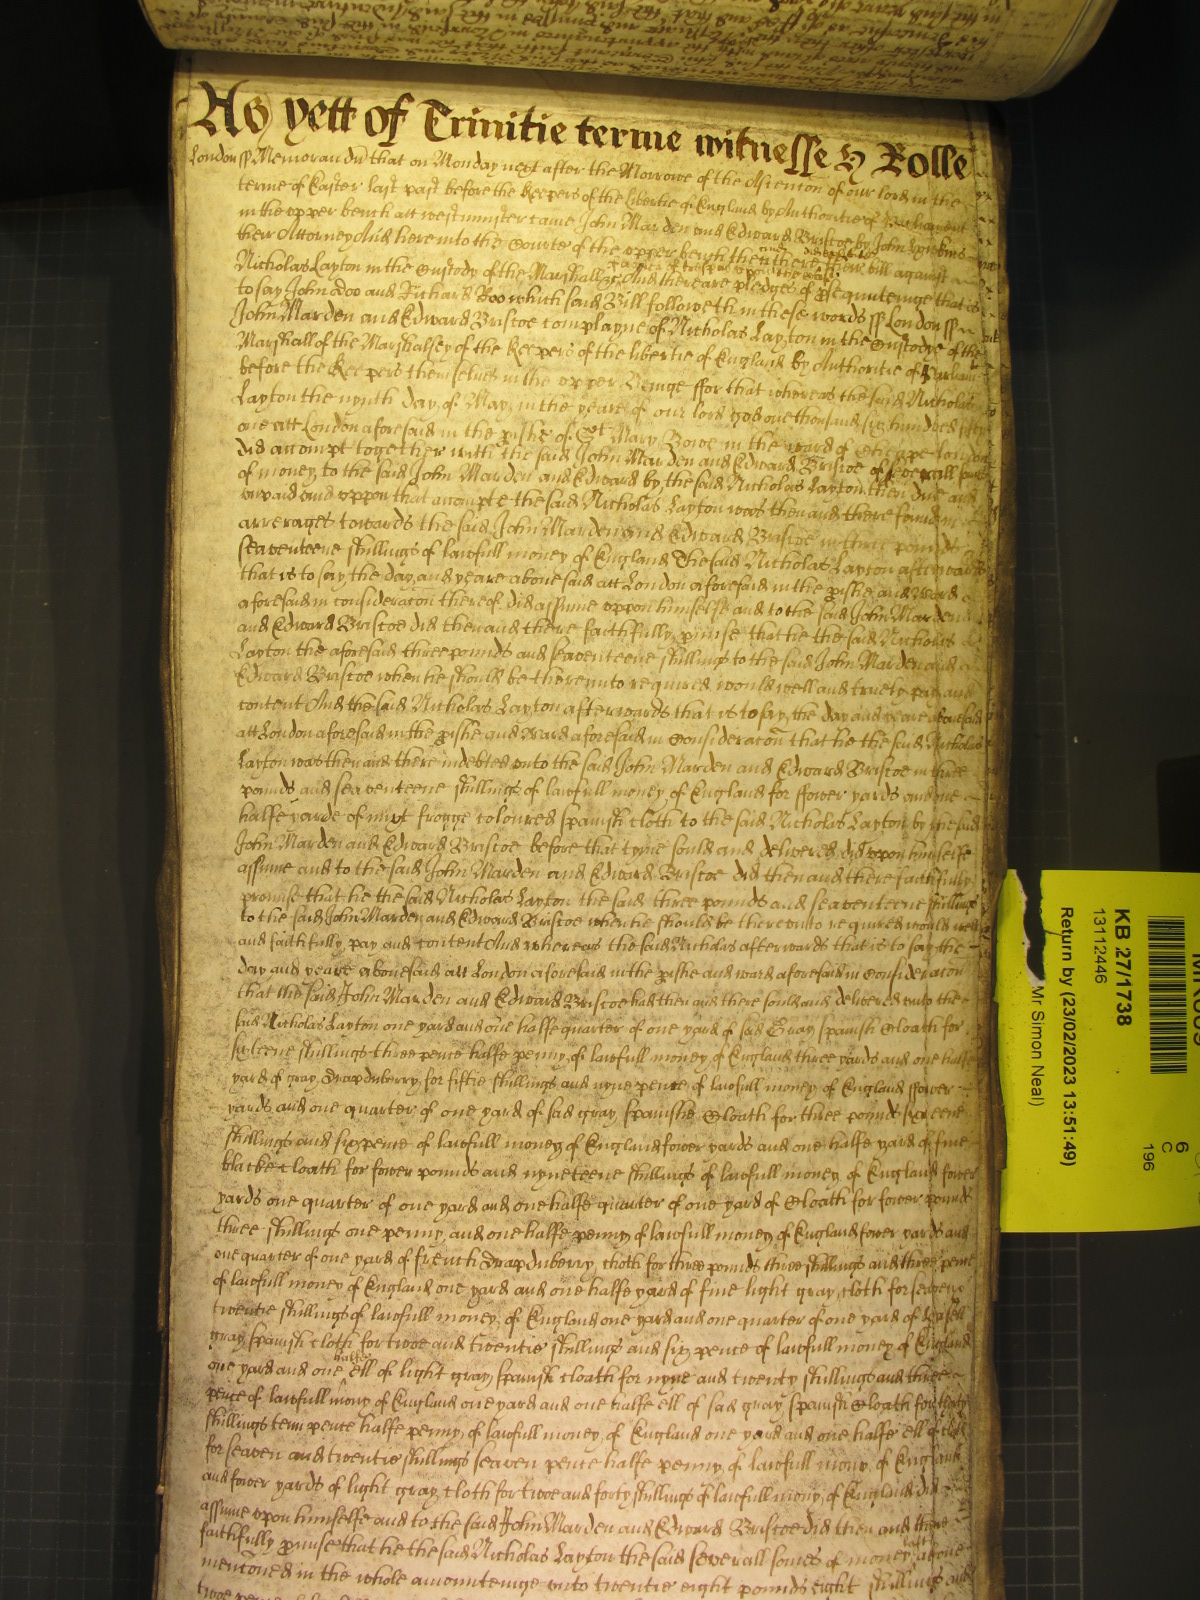 As yett of Trinitie terme witnesse H Rolle
London ss Memorandũ that on Monday next after the Morrowe of the Ascention of our lord in the
terme of Easter last past before the Keepers of the libertie of England by Authoritie of Parliament
in the upper bench att westminster came John Marden and Edward Briscoe by John
their Attorney And here into the Courte of the upper bench then there their bill against
Nicholas Layton in the Custody of the Marshall &c And there are pledges of psequuteinge that is
to say John doo and Richard Roo which said Bill followeth in these words ss London ss
John Marden and Edward Briscoe complayne of Nicholas Layton in the Custodye of the
Marshall of the Marshalsey of the Keepers of the libertie of England by Authoritie of Parliam
before the Keepers themselves in the upper Bench ffor that whereas the said Nicholas
Layton the nynth day of May in the yeare of our lord god one thousand six hundred fifty
one att London aforesaid in the pishe of St Mary Bowe in the ward of Cheape London
did accompt together with the said John Marden and Edward Briscoe of severall
of money to the said John Marden and Edward by the said Nicholas Layton then due and
unpaid and uppon that accompte the said Nicholas Layton was then and there found in
arrerages towards the said John Marden and Edward Briscoe in three pounds
seaventeene shillings of lawfull money of England The said Nicholas Layton afterwards
that is to say the day and yeare abovesaid att London aforesaid in the pishe and ward
aforesaid in consideracon thereof did assume uppon himselfe and to the said John Marden
and Edward Briscoe did then and there faithfully pmise that he the said Nicholas
Layton the aforesaid three pounds and seaventeene shillings to the said John Marden and
Edward Briscoe when he should be thereunto required would well and truely pay and
content And the said Nicholas Layton afterwards that is to say the day and yeare abovesaid
att London aforesaid in the pishe and Ward aforesaid in Consideracon that he the said Nicholas
Layton was then and there indebted unto the said John Marden and Edward Briscoe in three
pounds and seaventeene shillings of lawfull money of England for ffower yards and one
halfe yarde of mixt frogge coloured spanish cloth to the said Nicholas Layton by the said
John Marden and Edward Briscoe before that tyme sould and delivered did upon himselfe
assume and to the said John Marden and Edward Briscoe did then and there faithfully
promise that he the said Nicholas Layton the said three pounds and seaventeene shillings
to the said John Marden and Edward Briscoe when he should be thereunto required would well
and faithfully pay and content And whereas the said Nicholas afterwards that is to say the
day and yeare abovesaid att London aforesaid in the pishe and ward aforesaid in Consideracon
that the said John Marden and Edward Briscoe had then and there sould and delivered unto the
said Nicholas Layton one yard and one halfe quarter of one yard of sad Gray spanish Cloath for
sixteene shillings three pence halfe penny of lawfull money of England three yards and one halfe
yard of gray Drapduberry for fiftie shillings and nyne pence of lawfull money of England ffower
yards and one quarter of one yard of sad gray spanishe Cloath for three pounds sixteene
shillings and sixpence of lawfull money of England fower yards and one halfe yard of fine
blacke cloath for fower pounds and nyneteene shillings of lawfull money of England fower
yards one quarter of one yard and one halfe quarter of one yard of Cloath for fower pounds
three shillings one penny and one halfe penny of lawfull money of England fower yards and
one quarter of one yard of french Drapduberry cloth for three pounds three shillings and three pence
of lawfull money of England one yard and one halfe yard of fine light gray cloth for seaven
twentie shillings of lawfull money of England one yard and one quarter of one yard of
gray spanish cloth for twoe and twentie shillings and six pence of lawfull money of England
one yard and one halfe ell of light gray spanish cloath for nyne and twenty shillings and three
pence of lawfull mony of England one yard and one halfe ell of sad gray spanish Cloath for thirty
shillings tenn pence halfe penny of lawfull money of England one yard and one halfe ell of cloth
for seaven and twentie shillings seaven pence halfe penny of lawfull mony of England
and fower yards of light gray cloth for twoe and forty shillings of lawfull mony of England did
assume upon himselfe and to the said John Marden and Edward Briscoe did then and there
faithfully pmise that he the said Nicholas Layton the said severall somes of money last above
mencioned in the whole amounteinge unto twentie eight pounds eight shillings and
twoe pence
KB 27/1738
13112446
Return by (23/02/2023 13:51:49)
Mr Simon Neal)
6
C
196